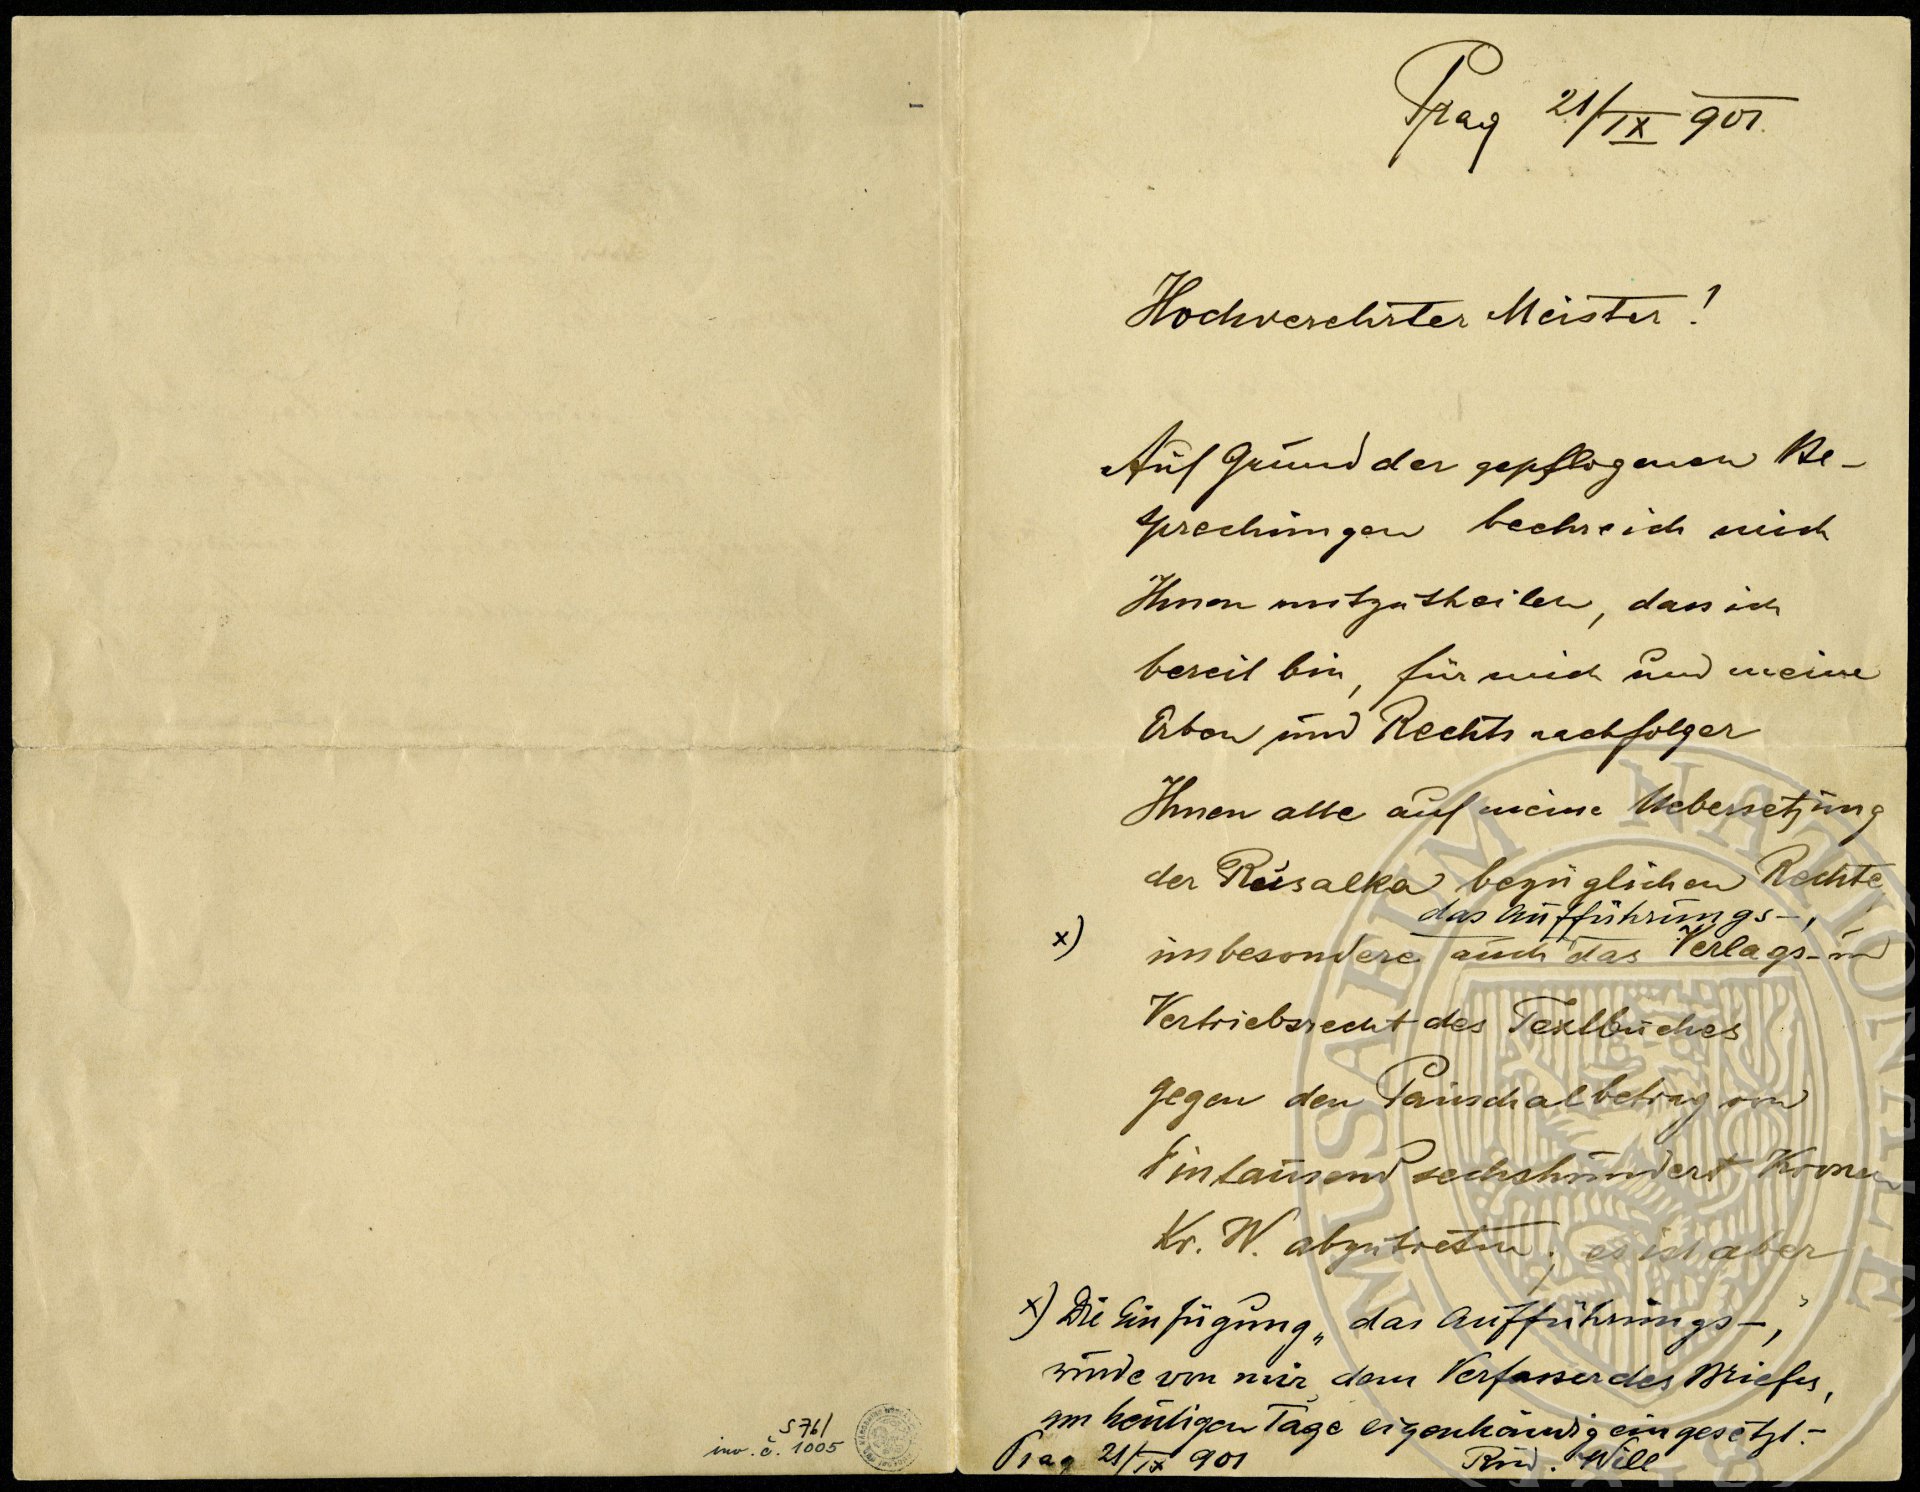 S 76/
inv. č. 1005
Prag 21/IX 901
Hochverehrter Meister!
Auf Grund der gepflogenen Be-
sprechungen beehre ich mich
Ihnen mitzutheilen, dass ich
bereit bin, für mich und meine
Erben und Rechtsnachfolger
Ihnen alle auf meine Uebersetzung
der Rusalka bezüglichen Rechte
das Aufführungs-,
x) insbesondere auch das Verlags- und
Vertriebsrecht des Textbuches
gegen den Pauschalbetrag von
Eintausendsechshundert Kronen
Kr. W. abzutreten; es ist aber
x) Die Einfügung „das Aufführungs-,"
wurde von mir dem Verfasser des Briefes,
am heutigen Tage eigenhändig eingesetzt.-
Prag 21/IX 901 Rud. Will
MUSAEUM NATIONALE